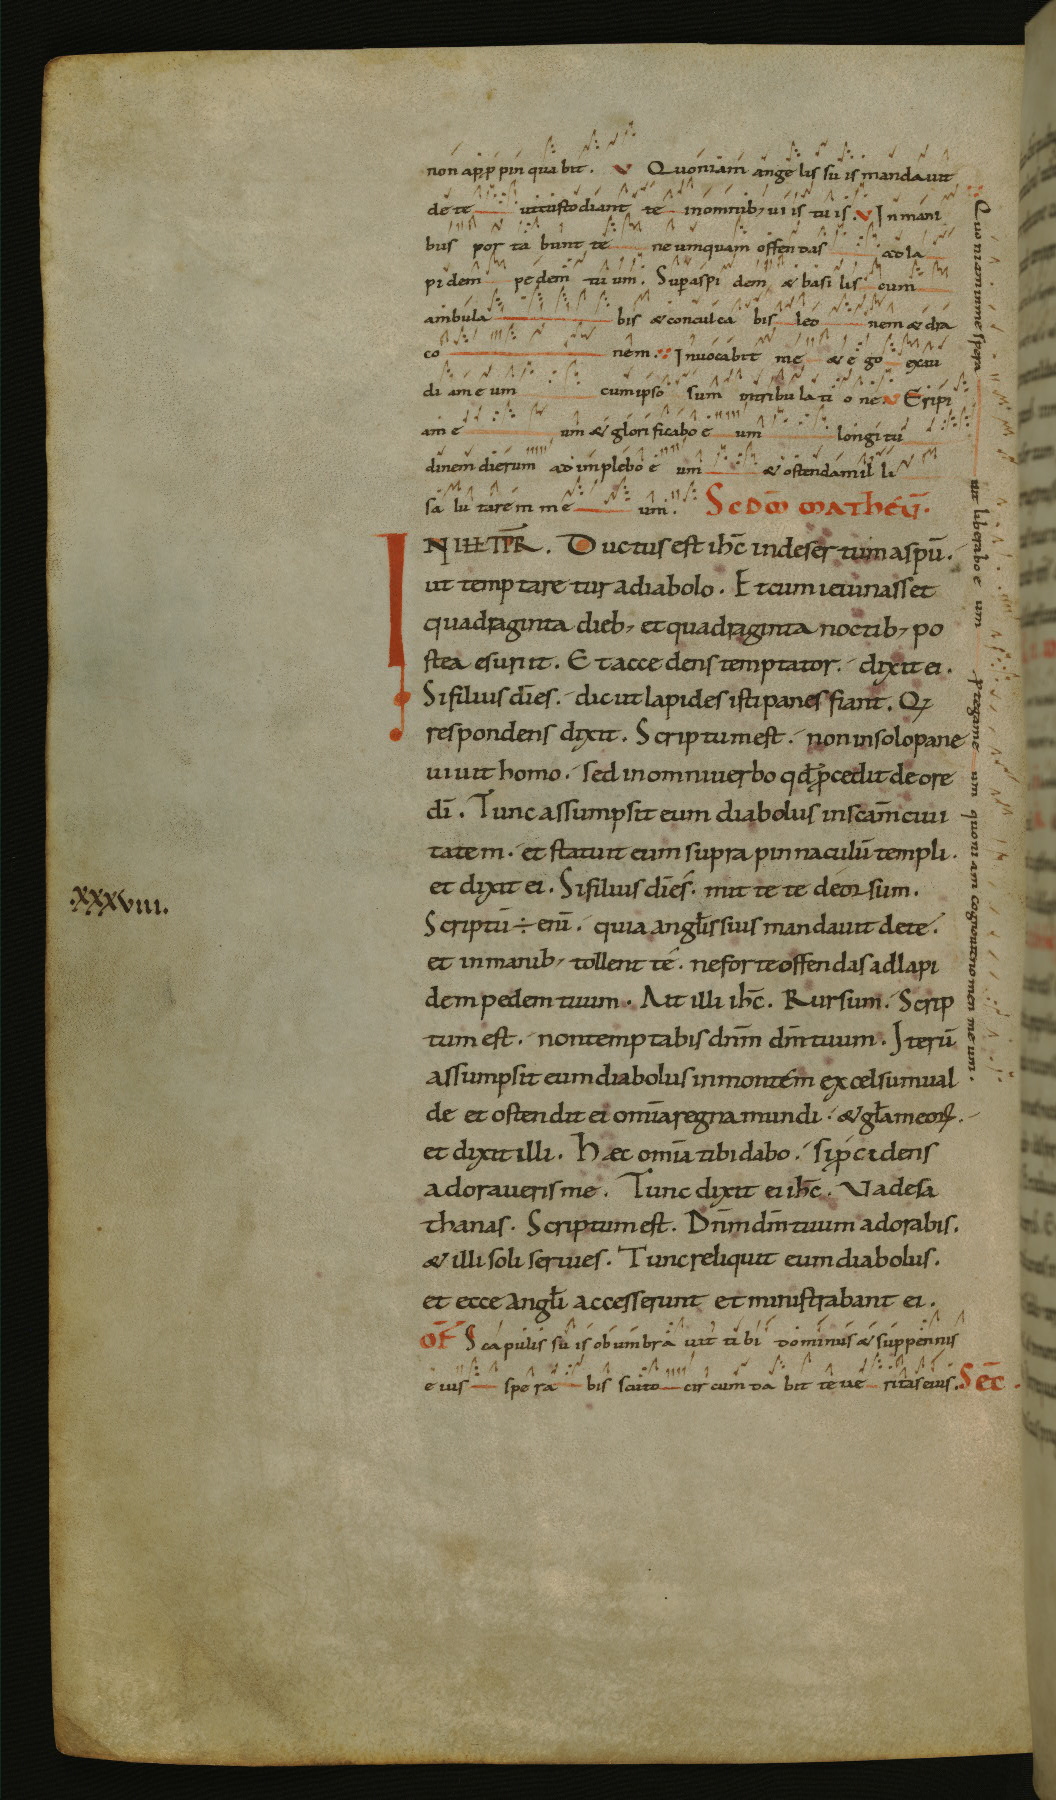 non app̄pinquabit. V Quoniam angelis suis mandavit
de te ut custodiant te in omnib; viis tuis. V In mani
bus portabunt te ne umquam offendas ad la
pidem pedem tuum. Sup aspidem & basiliscum
ambulabis & conculcabis leonem & dra
conem. Invocabit me & ego exau
diam eum cum ipso sum in tribulatione V Eripi
am eum & glorificabo eum longitu
dinem dierum adimplebo eum & ostendam illi
salutarem meum. S͞CDM MATHEŪ.
IN ILL TPR. Ductus est ihc̄ in desertum a spū.
ut temptaretur a diabolo. Et cum ieiunasset
quadraginta dieb; et quadraginta noctib; po
stea esuriit. Et accedens temptator. dixit ei.
Si filius dī es. dic ut lapides isti panes fiant. Q
respondens dixit. Scriptum est. non in solo pane
vivit homo. sed in omni verbo qd p̄cedit de ore
dī. Tunc assumpsit eum diabolus in scām civi
tatem. et statuit eum supra pinnaculū templi.
et dixit ei. Si filius dī es. mitte te deorsum.
.XXXVIII.
Scriptū ÷ enī. quia angl̄is suis mandavit de te.
et in manib; tollent te. ne forte offendas ad lapi
dem pedem tuum. Ait illi ihc̄. Rursum. Scrip
tum est. non temptabis dnm̄ dm̄ tuum. Iterū
assumpsit eum diabolus in montem excelsum val
de et ostendit ei omīa regna mundi. & gl̄am eoꝝ.
et dixit illi. Haec omīa tibi dabo. si p̄cidens
adoraveris me. Tunc dixit ei ihc̄. Vade sa
thanas. Scriptum est. Dnm̄ dm̄ tuum adorabis.
& illi soli servies. Tunc reliquit eum diabolus.
et ecce angl̄i accesserunt et ministrabant ei.
OF̄ Scapulis suis obumbravit tibi dominus & sup pennis
eius sperabis scuto circumdabit te veritas eius. SEC̄.
Quoniam in me speravit liberabo eum ꝓtegam eum quoniam cognovit nomen meum.